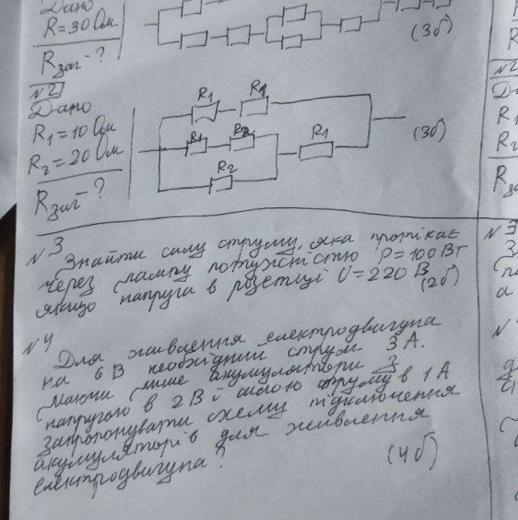 Дано
R=30 Ом
Rзаг-?
(3б)
№2
Дано
R1=10 Ом
R2=20 Ом
Rзаг-?
R1 R1
R1 R2 R1
R2
(3б)
№3
Знайти силу струму, яка протікає
через лампу потужністю P=100 Вт
якщо напруга в розетці U=220 В
(2б)
№4
Для живлення електродвигуна
на 6 В необхідний струм 3 А.
Маючи лише акумулятори з
напругою в 2 В і силою струму в 1 А
запропонувати схему підключення
акумуляторів для живлення
електродвигуна?
(4б)